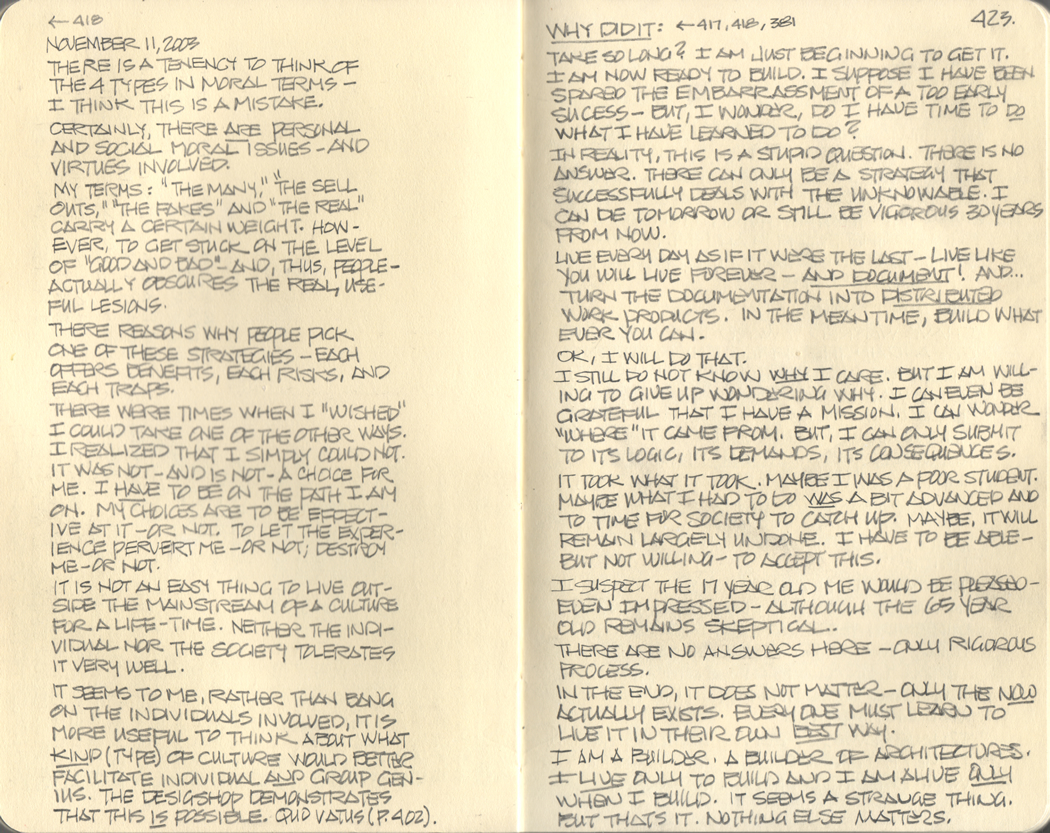 ←418
NOVEMBER 11, 2003
THERE IS A TENENCY TO THINK OF
THE 4 TYPES IN MORAL TERMS –
I THINK THIS IS A MISTAKE.
CERTAINLY, THERE ARE PERSONAL
AND SOCIAL MORAL ISSUES – AND
VIRTUES INVOLVED.
MY TERMS: "THE MANY," "THE SELL
OUTS," "THE FAKES" AND "THE REAL"
CARRY A CERTAIN WEIGHT. HOW-
EVER, TO GET STUCK ON THE LEVEL
OF "GOOD AND BAD" – AND, THUS, PEOPLE –
ACTUALLY OBSCURES THE REAL, USE-
FUL LESIONS.
THERE REASONS WHY PEOPLE PICK
ONE OF THESE STRATEGIES – EACH
OFFERS BENEFITS, EACH RISKS, AND
EACH TRAPS.
THERE WERE TIMES WHEN I "WISHED"
I COULD TAKE ONE OF THE OTHER WAYS.
I REALIZED THAT I SIMPLY COULD NOT.
IT WAS NOT – AND IS NOT – A CHOICE FOR
ME. I HAVE TO BE ON THE PATH I AM
ON. MY CHOICES ARE TO BE EFFECT-
IVE AT IT – OR NOT. TO LET THE EXPER-
IENCE PERVERT ME – OR NOT; DESTROY
ME – OR NOT.
IT IS NOT AN EASY THING TO LIVE OUT-
SIDE THE MAINSTREAM OF A CULTURE
FOR A LIFE-TIME. NEITHER THE INDI-
VIDUAL NOR THE SOCIETY TOLERATES
IT VERY WELL.
IT SEEMS TO ME, RATHER THAN BANG
ON THE INDIVIDUALS INVOLVED, IT IS
MORE USEFUL TO THINK ABOUT WHAT
KIND (TYPE) OF CULTURE WOULD BETTER
FACILITATE INDIVIDUAL AND GROUP GEN-
IUS. THE DESIGSHOP DEMONSTRATES
THAT THIS IS POSSIBLE. QUO VATUS (P. 402).
423.
WHY DID IT: ←417, 418, 381
TAKE SO LONG? I AM JUST BEGINNING TO GET IT.
I AM NOW READY TO BUILD. I SUPPOSE I HAVE BEEN
SPARED THE EMBARRASSMENT OF A TOO EARLY
SUCESS – BUT, I WONDER, DO I HAVE TIME TO DO
WHAT I HAVE LEARNED TO DO?
IN REALITY, THIS IS A STUPID QUESTION. THERE IS NO
ANSWER. THERE CAN ONLY BE A STRATEGY THAT
SUCCESSFULLY DEALS WITH THE UNKNOWABLE. I
CAN DIE TOMORROW OR STILL BE VIGOROUS 30 YEARS
FROM NOW.
LIVE EVERY DAY AS IF IT WERE THE LAST – LIVE LIKE
YOU WILL LIVE FOREVER – AND DOCUMENT! AND...
TURN THE DOCUMENTATION INTO DISTRIBUTED
WORK PRODUCTS. IN THE MEANTIME, BUILD WHAT
EVER YOU CAN.
OK, I WILL DO THAT.
I STILL DO NOT KNOW WHY I CARE. BUT I AM WILL-
ING TO GIVE UP WONDERING WHY. I CAN EVEN BE
GRATEFUL THAT I HAVE A MISSION. I CAN WONDER
"WHERE" IT CAME FROM. BUT, I CAN ONLY SUBMIT
TO ITS LOGIC, ITS DEMANDS, ITS CONSEQUENCES.
IT TOOK WHAT IT TOOK. MAYBE I WAS A POOR STUDENT.
MAYBE WHAT I HAD TO DO WAS A BIT ADVANCED AND
TO TIME FOR SOCIETY TO CATCH UP. MAYBE, IT WILL
REMAIN LARGELY UNDONE. I HAVE TO BE ABLE –
BUT NOT WILLING – TO ACCEPT THIS.
I SUSPECT THE 17 YEAR OLD ME WOULD BE PLEASED –
EVEN IMPRESSED – ALTHOUGH THE 65 YEAR
OLD REMAINS SKEPTICAL.
THERE ARE NO ANSWERS HERE – ONLY RIGOROUS
PROCESS.
IN THE END, IT DOES NOT MATTER – ONLY THE NOW
ACTUALLY EXISTS. EVERY ONE MUST LEARN TO
LIVE IT IN THEIR OWN BEST WAY.
I AM A BUILDER. A BUILDER OF ARCHITECTURES.
I LIVE ONLY TO BUILD AND I AM ALIVE ONLY
WHEN I BUILD. IT SEEMS A STRANGE THING.
BUT THATS IT. NOTHING ELSE MATTERS.